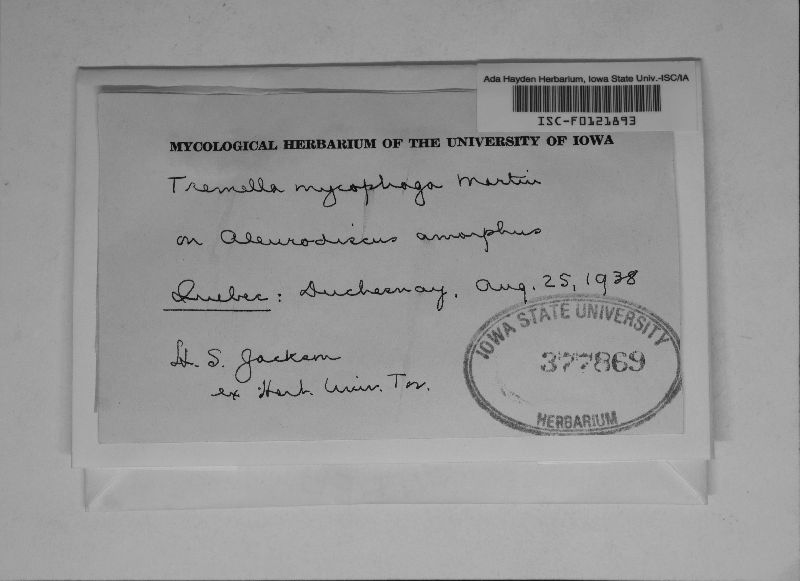 Ada Hayden Herbarium, Iowa State Univ.-ISC/IA
ISC-F0121893
MYCOLOGICAL HERBARIUM OF THE UNIVERSITY OF IOWA
Tremella mycophaga Martin
on Aleurodiscus amorphus
Quebec: Duchesnay, Aug. 25, 1938
H. S. Jackson
ex Herb. Univ. Tor.
IOWA STATE UNIVERSITY
377869
HERBARIUM